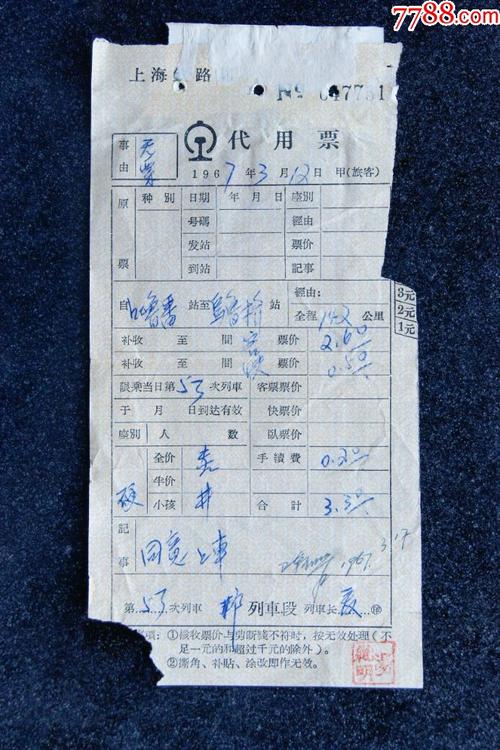 7788.com
上海 路
№ 047751
代用票
事由 无票
1967年3月12日 甲(旅客)
原票 种别 日期 年月日 座别
号码 经由
发站 票价
到站 记事
3元
2元
1元
自 吐鲁番 站至 站 经由:
全程 142 公里
补收 至 间 票价 2.60
补收 至 间 票价 0.50
限乘当日第53次列车 客票票价
于 月 日到达有效 快票价
座别 人数 臥票价
硬 全价 手續費 0.20
半价
小孩 合計 3.30
記事 车
1967.3.17
第53次列車 列車段 列車长
項:①核收票价与剪断綫不符时,按无效处理(不
足一元的和超过千元的除外)。
②撕角、补貼、涂改即作无效。